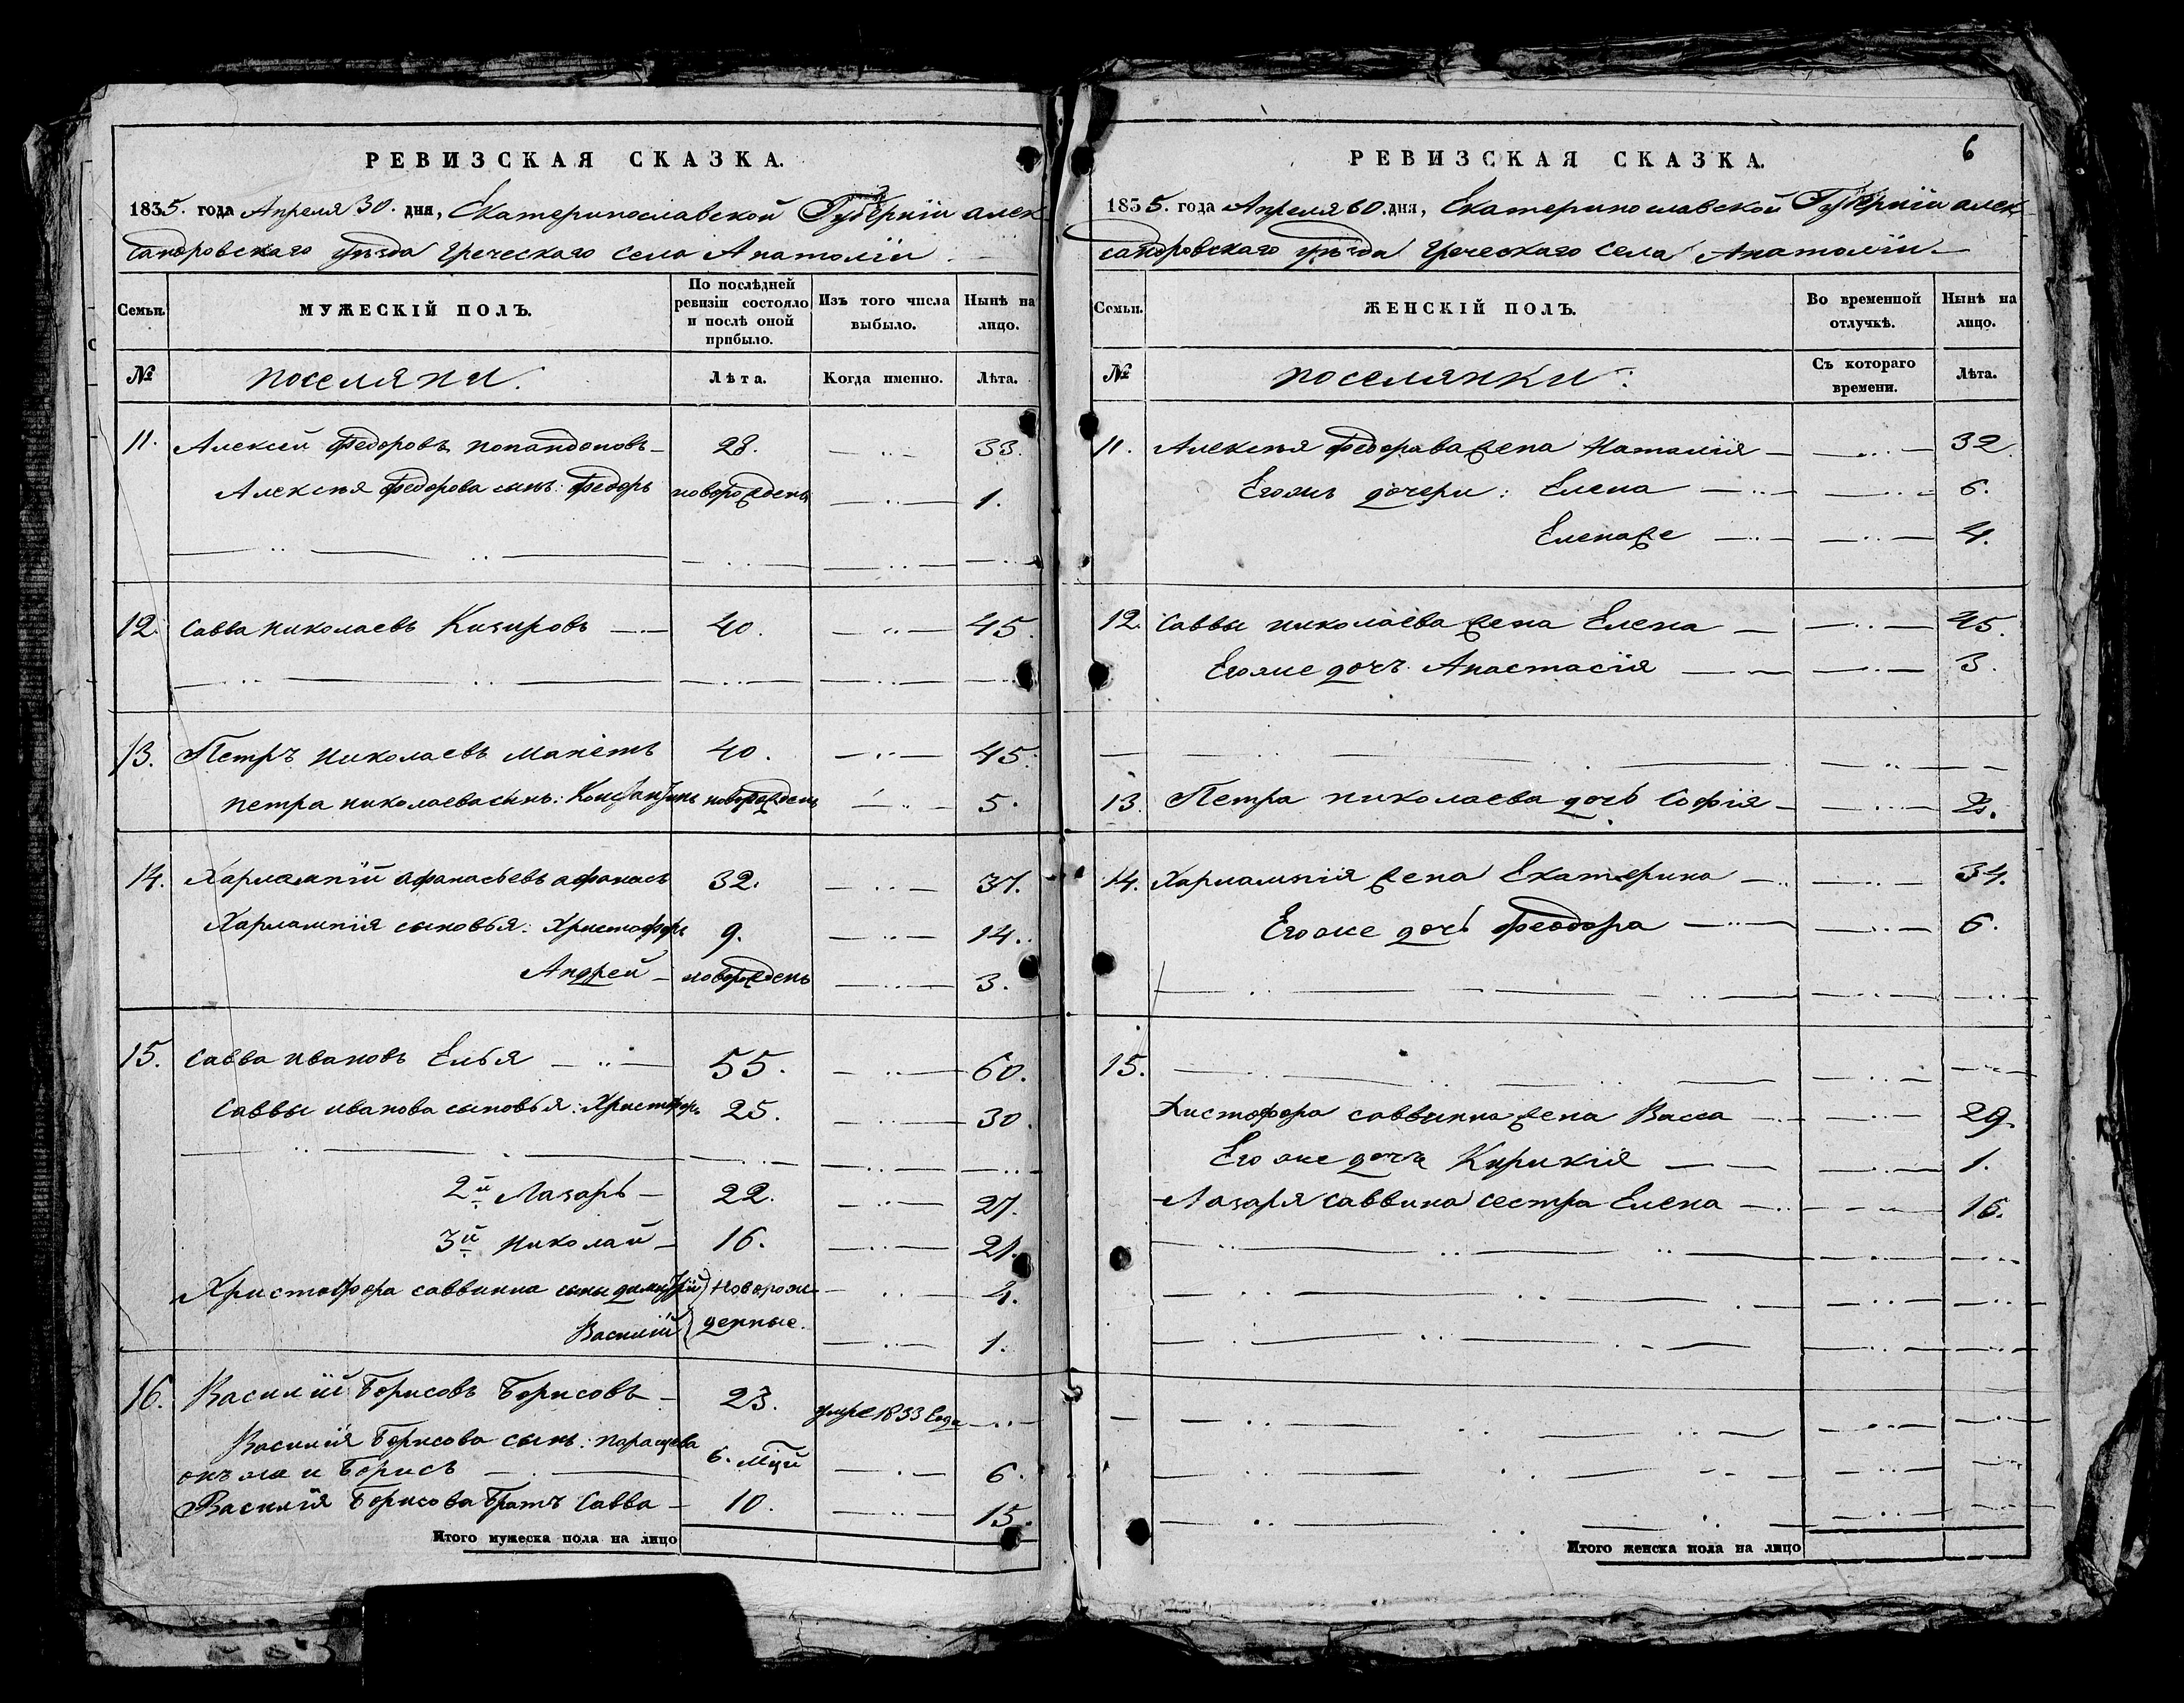 РЕВИЗСКАЯ СКАЗКА.
1835. года Апреля 30. дня, Екатеринославской Губерніи алек
сандровскаго уѣзда греческаго села Анатоліи
Семьи.
МУЖЕСКІЙ ПОЛЪ.
По послѣдней ревизіи состояло и послѣ оной прибыло.
Изъ того числа выбыло.
Нынѣ на лицо.
№ поселяни. Лѣта. Когда именно. Лѣта.
11. Алексей Федоровъ попандоповъ 28. 33.
Алексѣя Федорова сынъ: Федоръ новорожденъ 1.
12. Савва николаевъ Кизировъ 40. 45.
13. Петръ николаевъ 40. 45.
петра николаева сынъ: Константинъ новорожденъ 5.
14. Харлампій афанасьевъ афанась 32. 37.
Харлампія сыновья: Христофоръ 9. 14.
Андрей новорожденъ 3.
15. Савва ивановъ Елья 55. 60.
Саввы иванова сыновья: Христофоръ 25. 30.
2й Лазарь 22. 27.
3й николай 16. 21.
Христофора саввина сыны димитрій новорож 4.
Василій денные. 1.
16. Василій Борисовъ Борисовъ 23. умре 1833 года
Василія Борисова сынъ: парацева 6. мцй
онъ же и Борисъ 6.
Василія Борисова братъ Савва 10. 15.
Итого мужеска пола на лицо
6
РЕВИЗСКАЯ СКАЗКА.
1835. года Апреля 30. дня, Екатеринославской Губерніи алек
сандровскаго уѣзда греческаго села Анатоліи
Семьи.
ЖЕНСКІЙ ПОЛЪ.
Во временной отлучкѣ.
Нынѣ на лицо.
№ поселянки: Съ котораго времени. Лѣта.
11. Алексѣя Федорова жена Наталія 32.
Егожъ дочери: Елена 6.
Елена же 4.
12. Саввы николаева жена Елена 45.
Егоже дочъ Анастасія 3.
13. Петра николаева дочь Софія 2.
14. Харлампія жена Екатерина 34.
Егоже дочь феодора 6.
15.
Хистофора саввина жена Васса 29.
Егоже дочъ Кирикія 1.
Лазаря саввина сестра Елена 16.
Итого женска пола на лицо